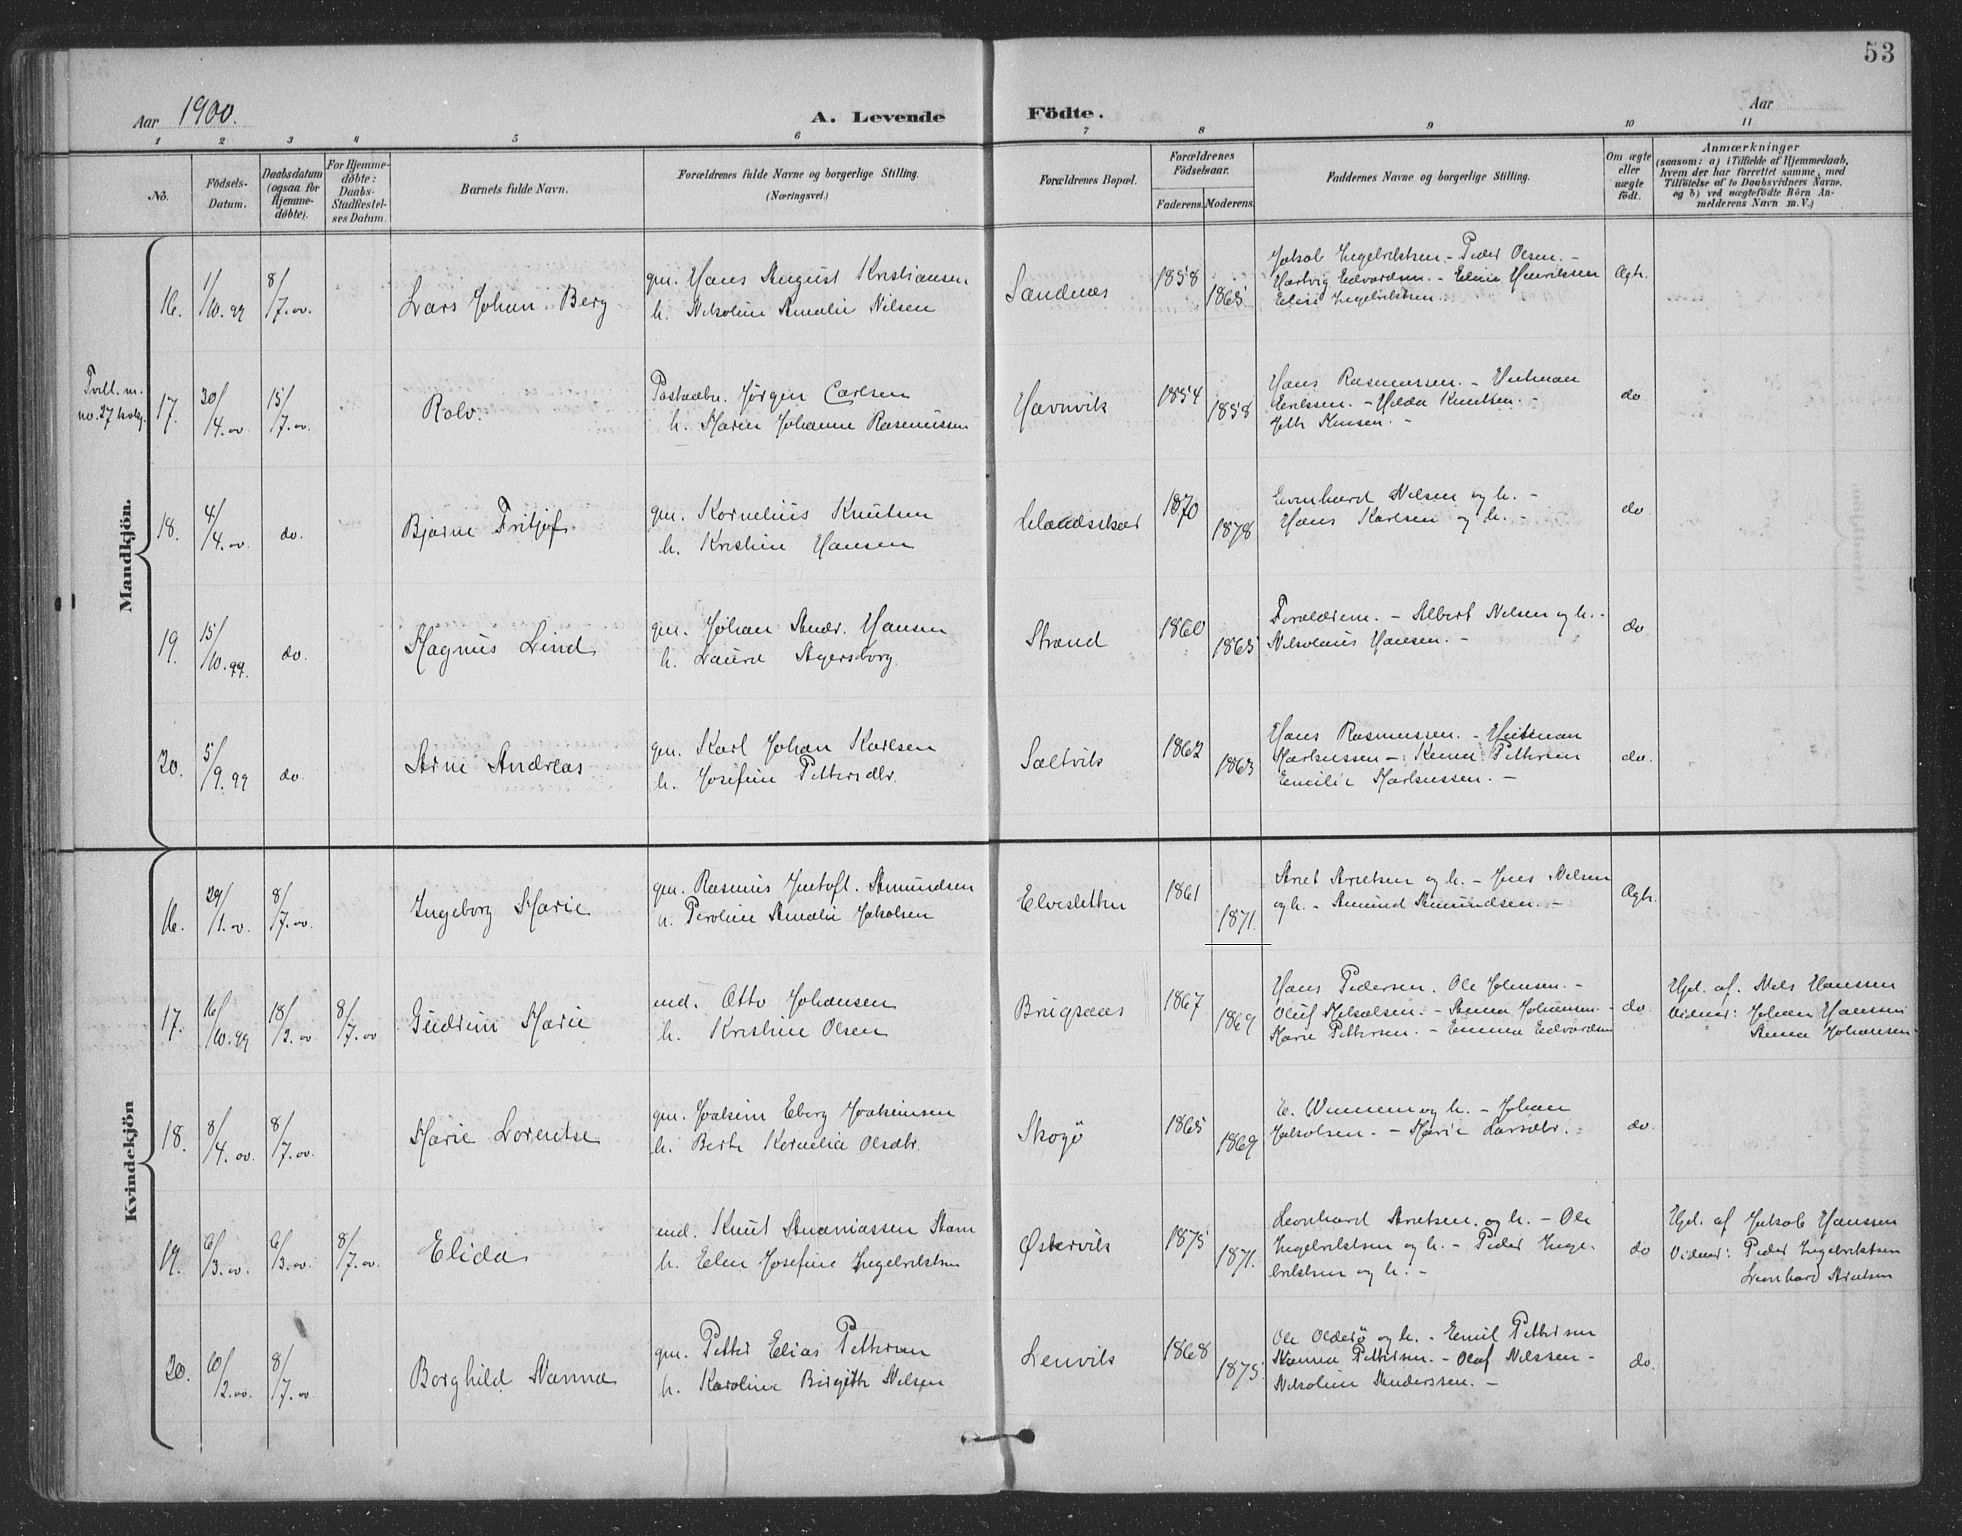 53
Aar 1900.
A. Levende Födte.
Aar
1 2 3 4 5 6 7 8 9 10 11
No.
Födsels-Datum.
Daabsdatum (ogsaa for Hjemme-döbte).
For Hjemme-döbte: Daabs-Stadfæstel-ses Datum.
Barnets fulde Navn.
Forældrenes fulde Navne og borgerlige Stilling. (Næringsvei.)
Forældrenes Bopæl.
Forældrenes Födselsaar.
Faderens. Moderens.
Faddernes Navne og borgerlige Stilling.
Om ægte eller uægte födt.
Anmærkninger
(saasom: a) i Tilfælde af Hjemmedaab,
hvem der har forrettet samme, med
Tilföielse af to Daabsvidners Navne,
og b) ved uægtefödte Börn An-
melderens Navn m. V.)
Mandkjön.
16. 1/10.99 8/7.00. Lars Johan Berg
gm. Hans August Kristiansen
h. Nikoline Amalie Nilsen
Sandnæs 1858 1865
Jakob Ingebriktsen - Peder Olsen. -
Hartvig Edvardsen. - Eline Henriksen
Elise Ingebriktsen.
Ægte.
Tvill. m.
no. 27
17. 30/4.00 15/7.00. Rolv.
Jørgen Carlsen
h. Maren Johanne Rasmussen
Havnvik 1854 1858
Hans Rasmussen. -
Hilda Knutsen. -
do
18. 4/4.00. do. Bjarne Fritjof
gm. Kornelius Knutsen
h. Kristine Hansen
1870 1878
Evenhard Nilsen og h. -
Hans Karlsen og h. -
do
19. 15/10.99. do. Magnus Lind
gm. Johan Andr. Hansen
h. Laura Agersborg
Strand 1860 1865
Forældrene. - Albert Nilsen og h. -
Nikolaus Hansen. -
do
20. 5/9.99 do Arne Andreas
gm. Karl Johan Karlsen
h. Josefine Pettersdtr.
Saltvik 1862 1863
Hans Rasmussen. -
Markussen - Pettersen
Emilie Markussen. -
do.
Kvindekjön
16. 29/1.00. 8/7.00. Ingeborg Marie
gm. Rasmus Amundsen
h. Peroline Amalie Jakobsen
Elvesletten 1861 1871.
Aret Aretsen og h. - Jens Nilsen
og h. - Amund Amundsen. -
Ægte.
17. 16/10.99 18/2.00 8/7.00 Gudrun Marie
ind. Otto Johansen
h. Kristine Olsen
1867 1869
Hans Pedersen. Ole Johnsen. -
Anna Johansen. -
Marie Pettersen. - Emma Edvardsen
do.
Hjd. af. Nels Hanssen
Vidner: Johan Hanssen
Anna Johansen -
18. 8/4.00. 8/7.00. Marie Lorentse
gm. Joakim Eberg Joakimsen
h. Berte Kornelia Olsdtr.
Skogø 1865 1869
E. og h. - Johan
Jakobsen. - Marie Larsdtr.
do.
19. 6/3.00. 6/3.00. 8/7.00. Elida
ind. Knut Ananiassen
h. Elen Josefine Ingebriktsen
Østervik 1875 1871.
Leonhard Aretsen. og h. - Ole
Ingebriktsen og h. - Peder Inge-
briktsen og h. -
do
Hjd. af Jakob Hanssen
Vidner: Peder Ingebriktsen
Leonhard Aretsen
20. 10/2.00. 8/7.00 Borghild Nanna
gm. Petter Elias Pettersen
h. Karoline Birgitte Nilsen
Lenvik 1868 1875.
Ole Olderø og h. - Emil Pettersen
Pettersen. - Olaf Nilssen -
Nikoline Anderssen. -
do.